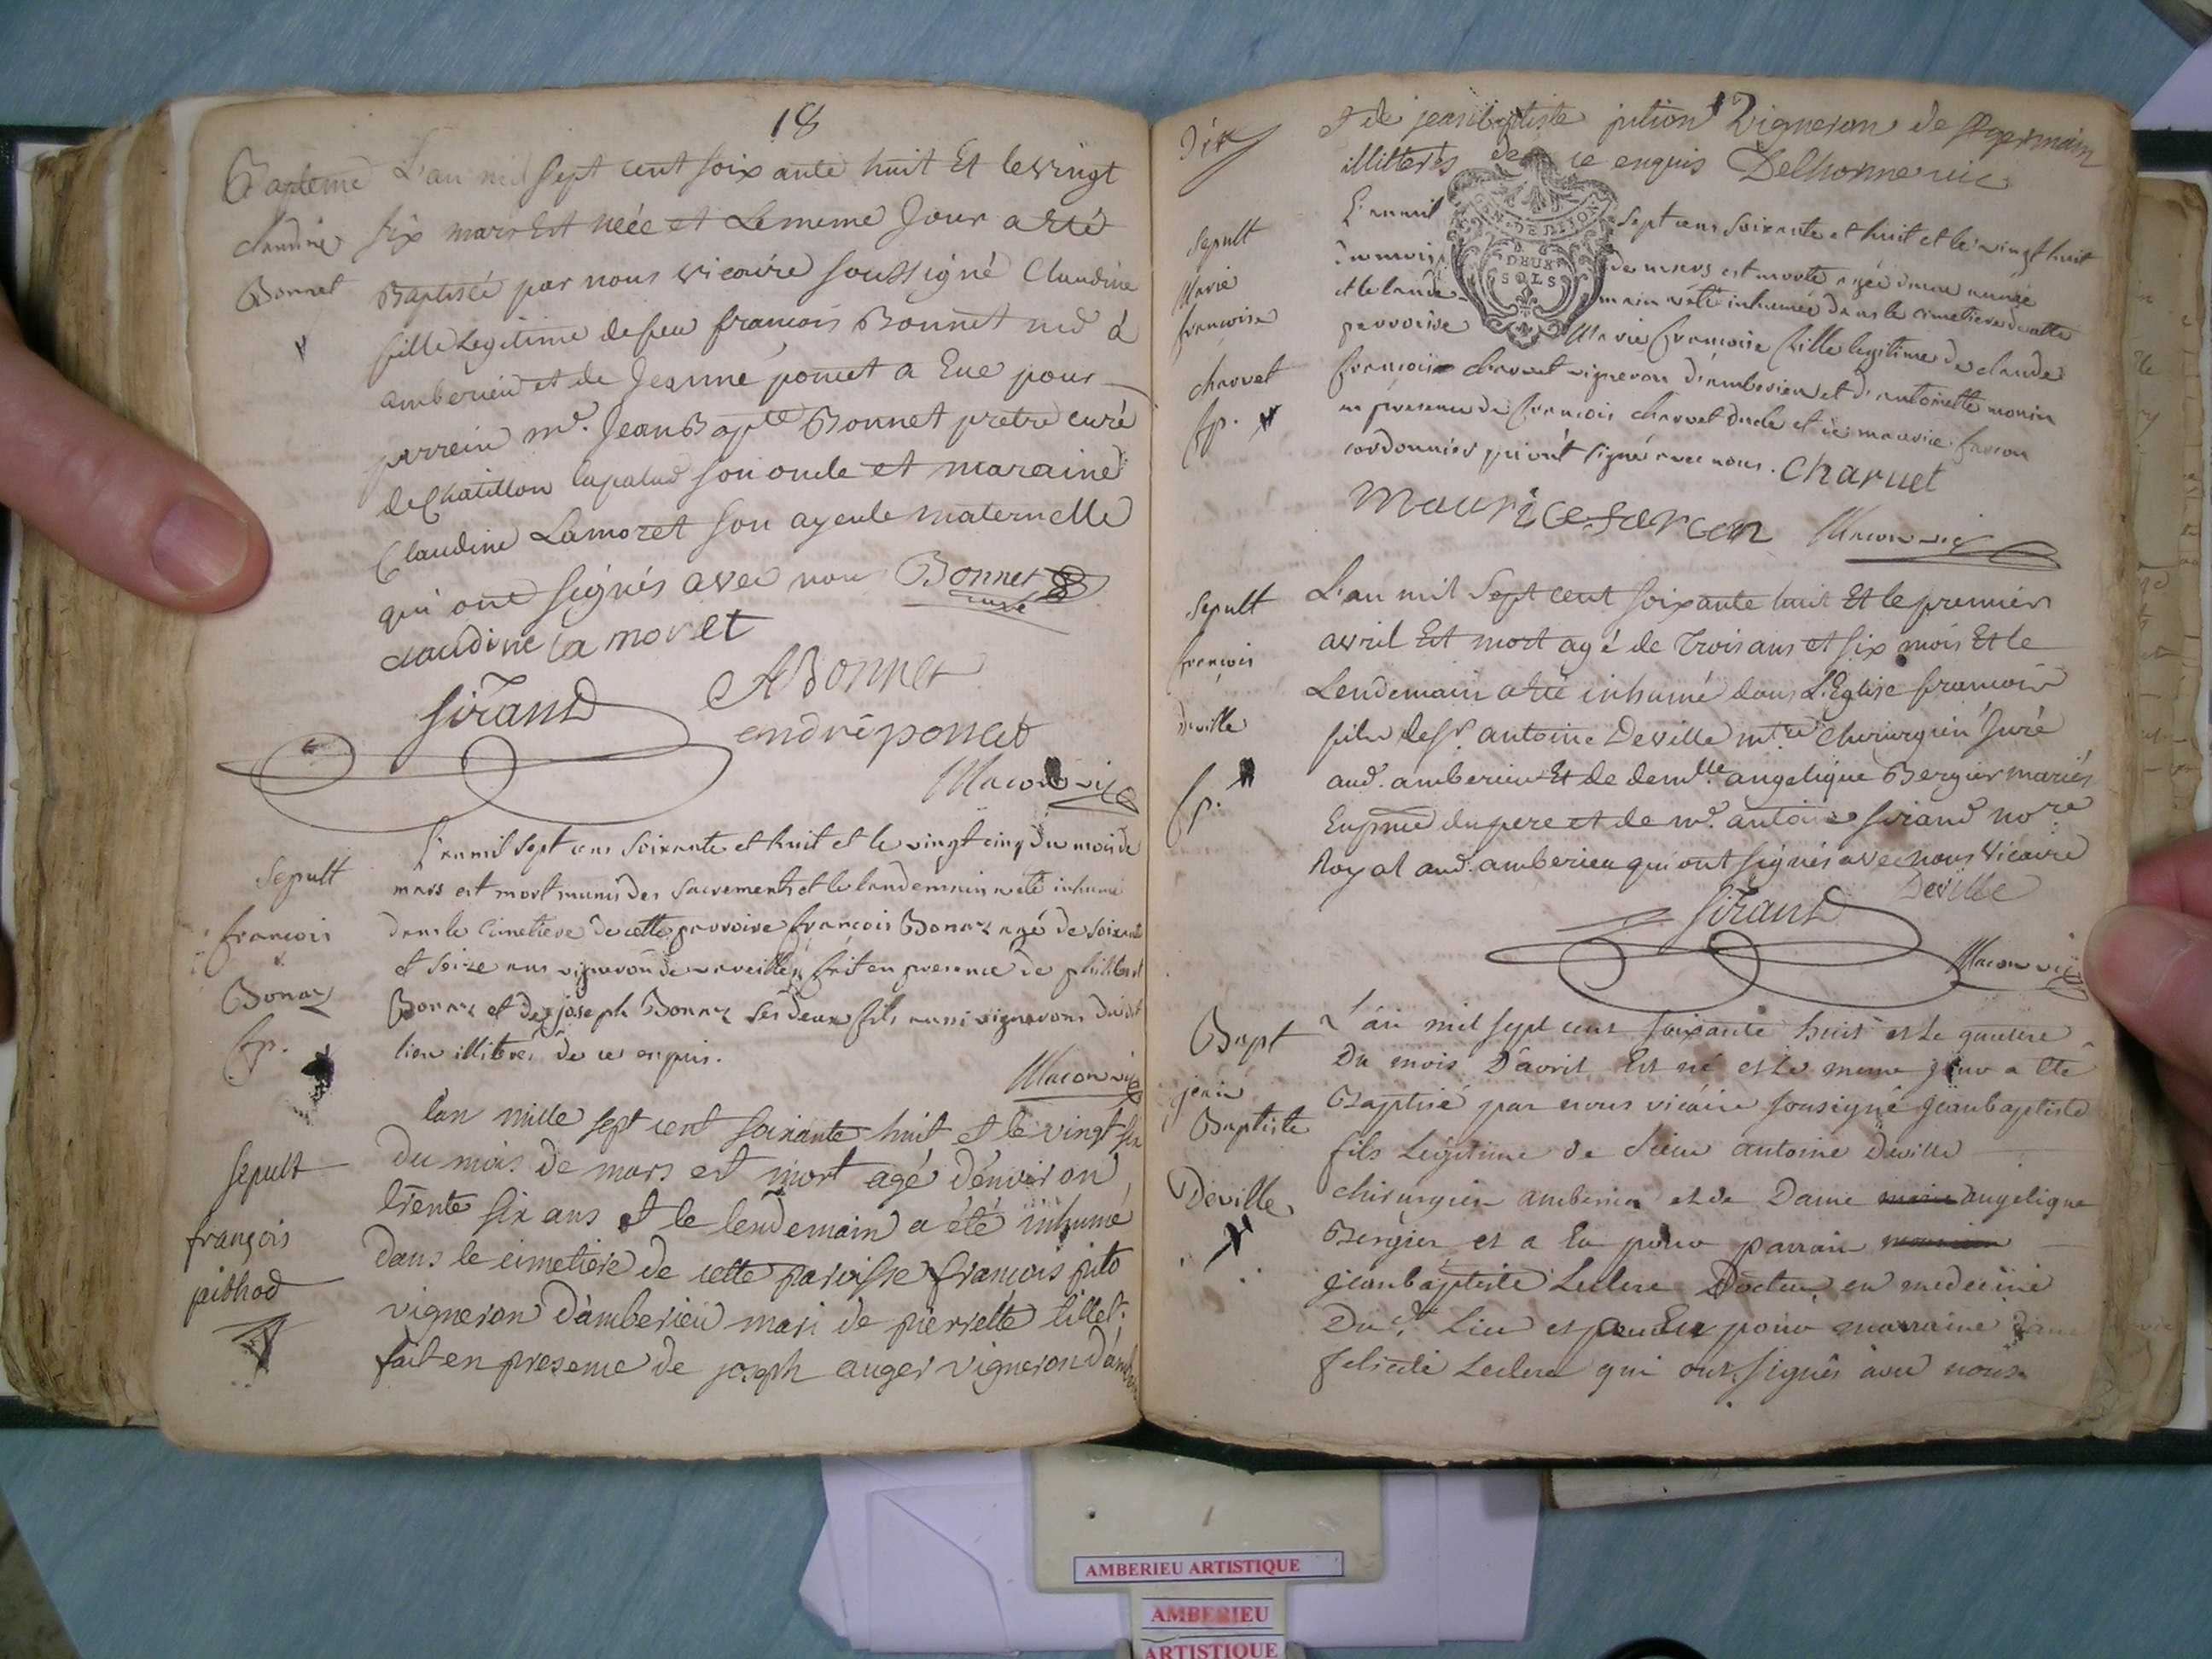 18
Bapteme
claudine
Bonnet
L'an mil sept cent soixante huit Et le vingt
six mars Est née et Le meme Jour a Eté
Baptisée par nous vicaire soussigné Claudine
fille Legitime de feu francois Bonnet md à
amberieu et de Jeanne poncet a Eue pour
parrein mr. Jean Bapte Bonnet pretre curé
de Chatillon lapalud son oncle et maraine
Claudine Lamoret son ayeule maternelle
qui ont signés avec nous Bonnet
curé
claudine la moret
ABonnet
Sirand
andré poncet
Macon vic
Sepult
francois
Bonaz
fp.
L'an mil sept cens soixante et huit et le vingt cinq du mois de
mars est mort munis des sacrements et le landemain a été inhumé
dans le cimetiere de cette parroise francois Bonaz agé de soixante
et seize ans vigneron de vareilles fait en presence de philibert
Bonaz et de joseph Bonaz ses deux fils aussi vignerons dudit
lieu illiteres de ce enquis.
Macon vic
sepult
françois
pithod
lan mille sept cent soixante huit et le vingt six
du mois de mars est mort agé d'environ
trente six ans et le lendemain a été inhumé
dans le cimetiere de cette paroisse françois pito
vigneron d'amberieu mari de pierrette tillet.
fait en presence de joseph auger vigneron d'amb
Dix
et de jean baptiste jution vigneron de st germain
illitterés de ce enquis Delhomme vic
sepult
Marie
francoise
charvet
fp.
L'an mil sept cens soixante et huit et le vingt huit
du mois de mars est morte agée d'une année
et le lande-main a été inhumée dans le cimetiere de cette
parroise Marie francoise fille legitime de claude
francois charvet vigneron d'amberieu et d'antoinette monin
en presence de francois charvet oncle et de maurice farcon
cordonnier qui ont signé avec nous. Charvet
Maurice farcon Macon vic
GEN. DE DIJON
DEUX
SOLS
Sepult
francois
deville
fp.
L'an mil Sept cent soixante huit Et le premier
avril Est mort agé de Trois ans et six mois Et le
Lendemain a Eté inhumé dans L'Eglise francois
fils de sr. antoine Deville mtre chirurgien Juré
aud. amberieu Et de demlle angelique Bergier mariés
En pnce du pere et de mr. antoine sirand nore
Royal aud. amberieu qui ont signés avec nous vicaire
Deville
Sirand
Macon vic
Bapt
jean
Baptiste
Deville
L'an mil sept cent soixante huit et le quatre
Du mois D'avril Est né et le meme jour a été
Baptisé par nous vicaire sousigné jean baptiste
fils Légitime de sieur antoine Deville
chirurgien amberieu et de Dame angelique
Bergier et a Eu pour parrain
jean baptiste Leclerc Docteur en medecine
Du dt. Lieu et pour marraine dame
felicité Leclerc qui ont signés avec nous
AMBERIEU ARTISTIQUE
AMBERIEU
ARTISTIQUE